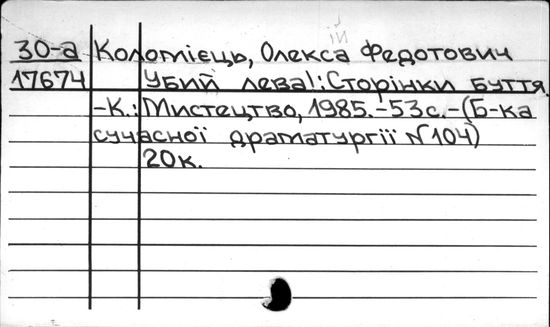 30-а Коломієць, Олекса Федотович
17674 Убий лева!: Сторінки буття.
-К.: Мистецтво, 1985.-53с.-(Б-ка
сучасної драматургії №104)
20к.